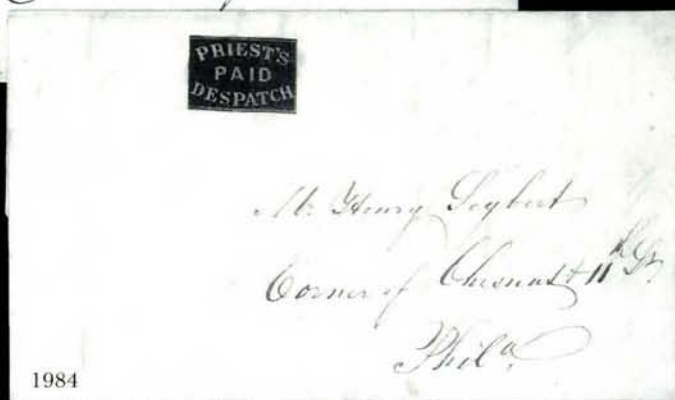 PRIEST'S
PAID
DESPATCH
Mr Henry Seybert
Corner of Chesnut & 11th St
Phila
1984